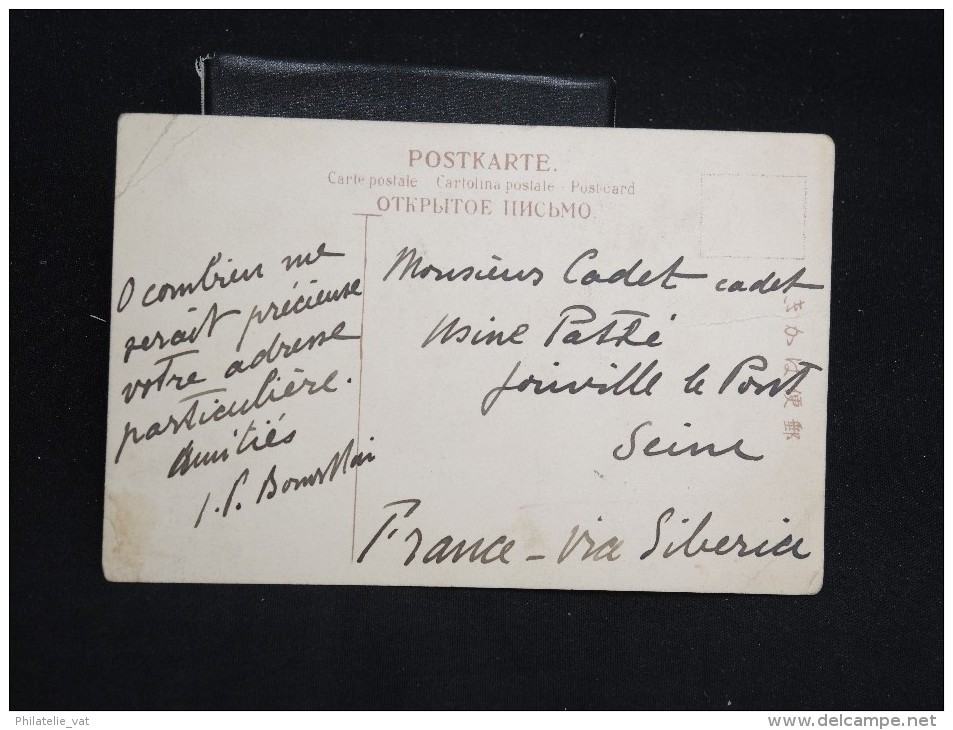 POSTKARTE.
Carte postale Cartolina postale Postcard
ОТКРЫТОЕ ПИСЬМО.
O combien me
serait précieuse
votre adresse
particulière.
Amitiés
J. P.
Monsieur Cadet cadet
Usine Pathé
Joinville le Pont
Seine
France - via Siberia
きかは便郵
Philatelie_vat
www.delcampe.net